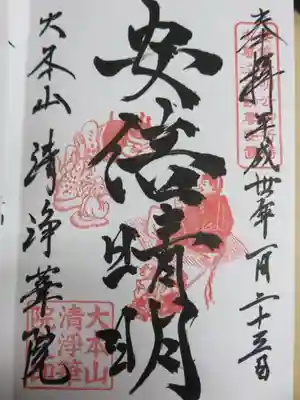 奉拝 平成卅年一月二十五日
安倍晴明
大本山 清浄華院
大本山
清浄華
院印